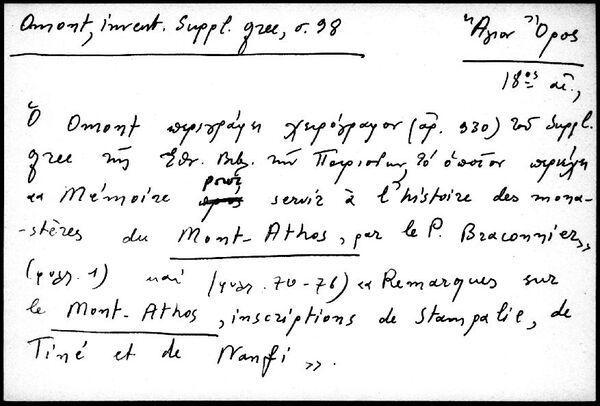 Omont, invent. Suppl. grec, σ. 98
Ἅγιον Ὄρος
18ος αἰ.,
Ὁ Omont περιγράφει χειρόγραφον (ἀρ. 930) τοῦ Suppl.
grec τῆς Ἐθν. Βιβ. τῶν Παρισίων, τὸ ὁποῖον περιέχει
«Mémoire pour servir à l'histoire des mona-
-stères du Mont-Athos, par le P. Braconnier»
(φυλλ. 1) καί (φυλλ. 70-76) «Remarques sur
le Mont-Athos, inscriptions de Stampalie, de
Tine et de Nanfi».